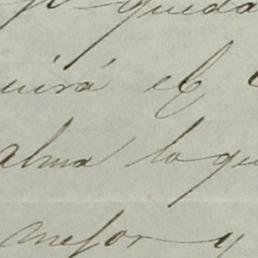 queda
uirá el
alma lo que
mejor y